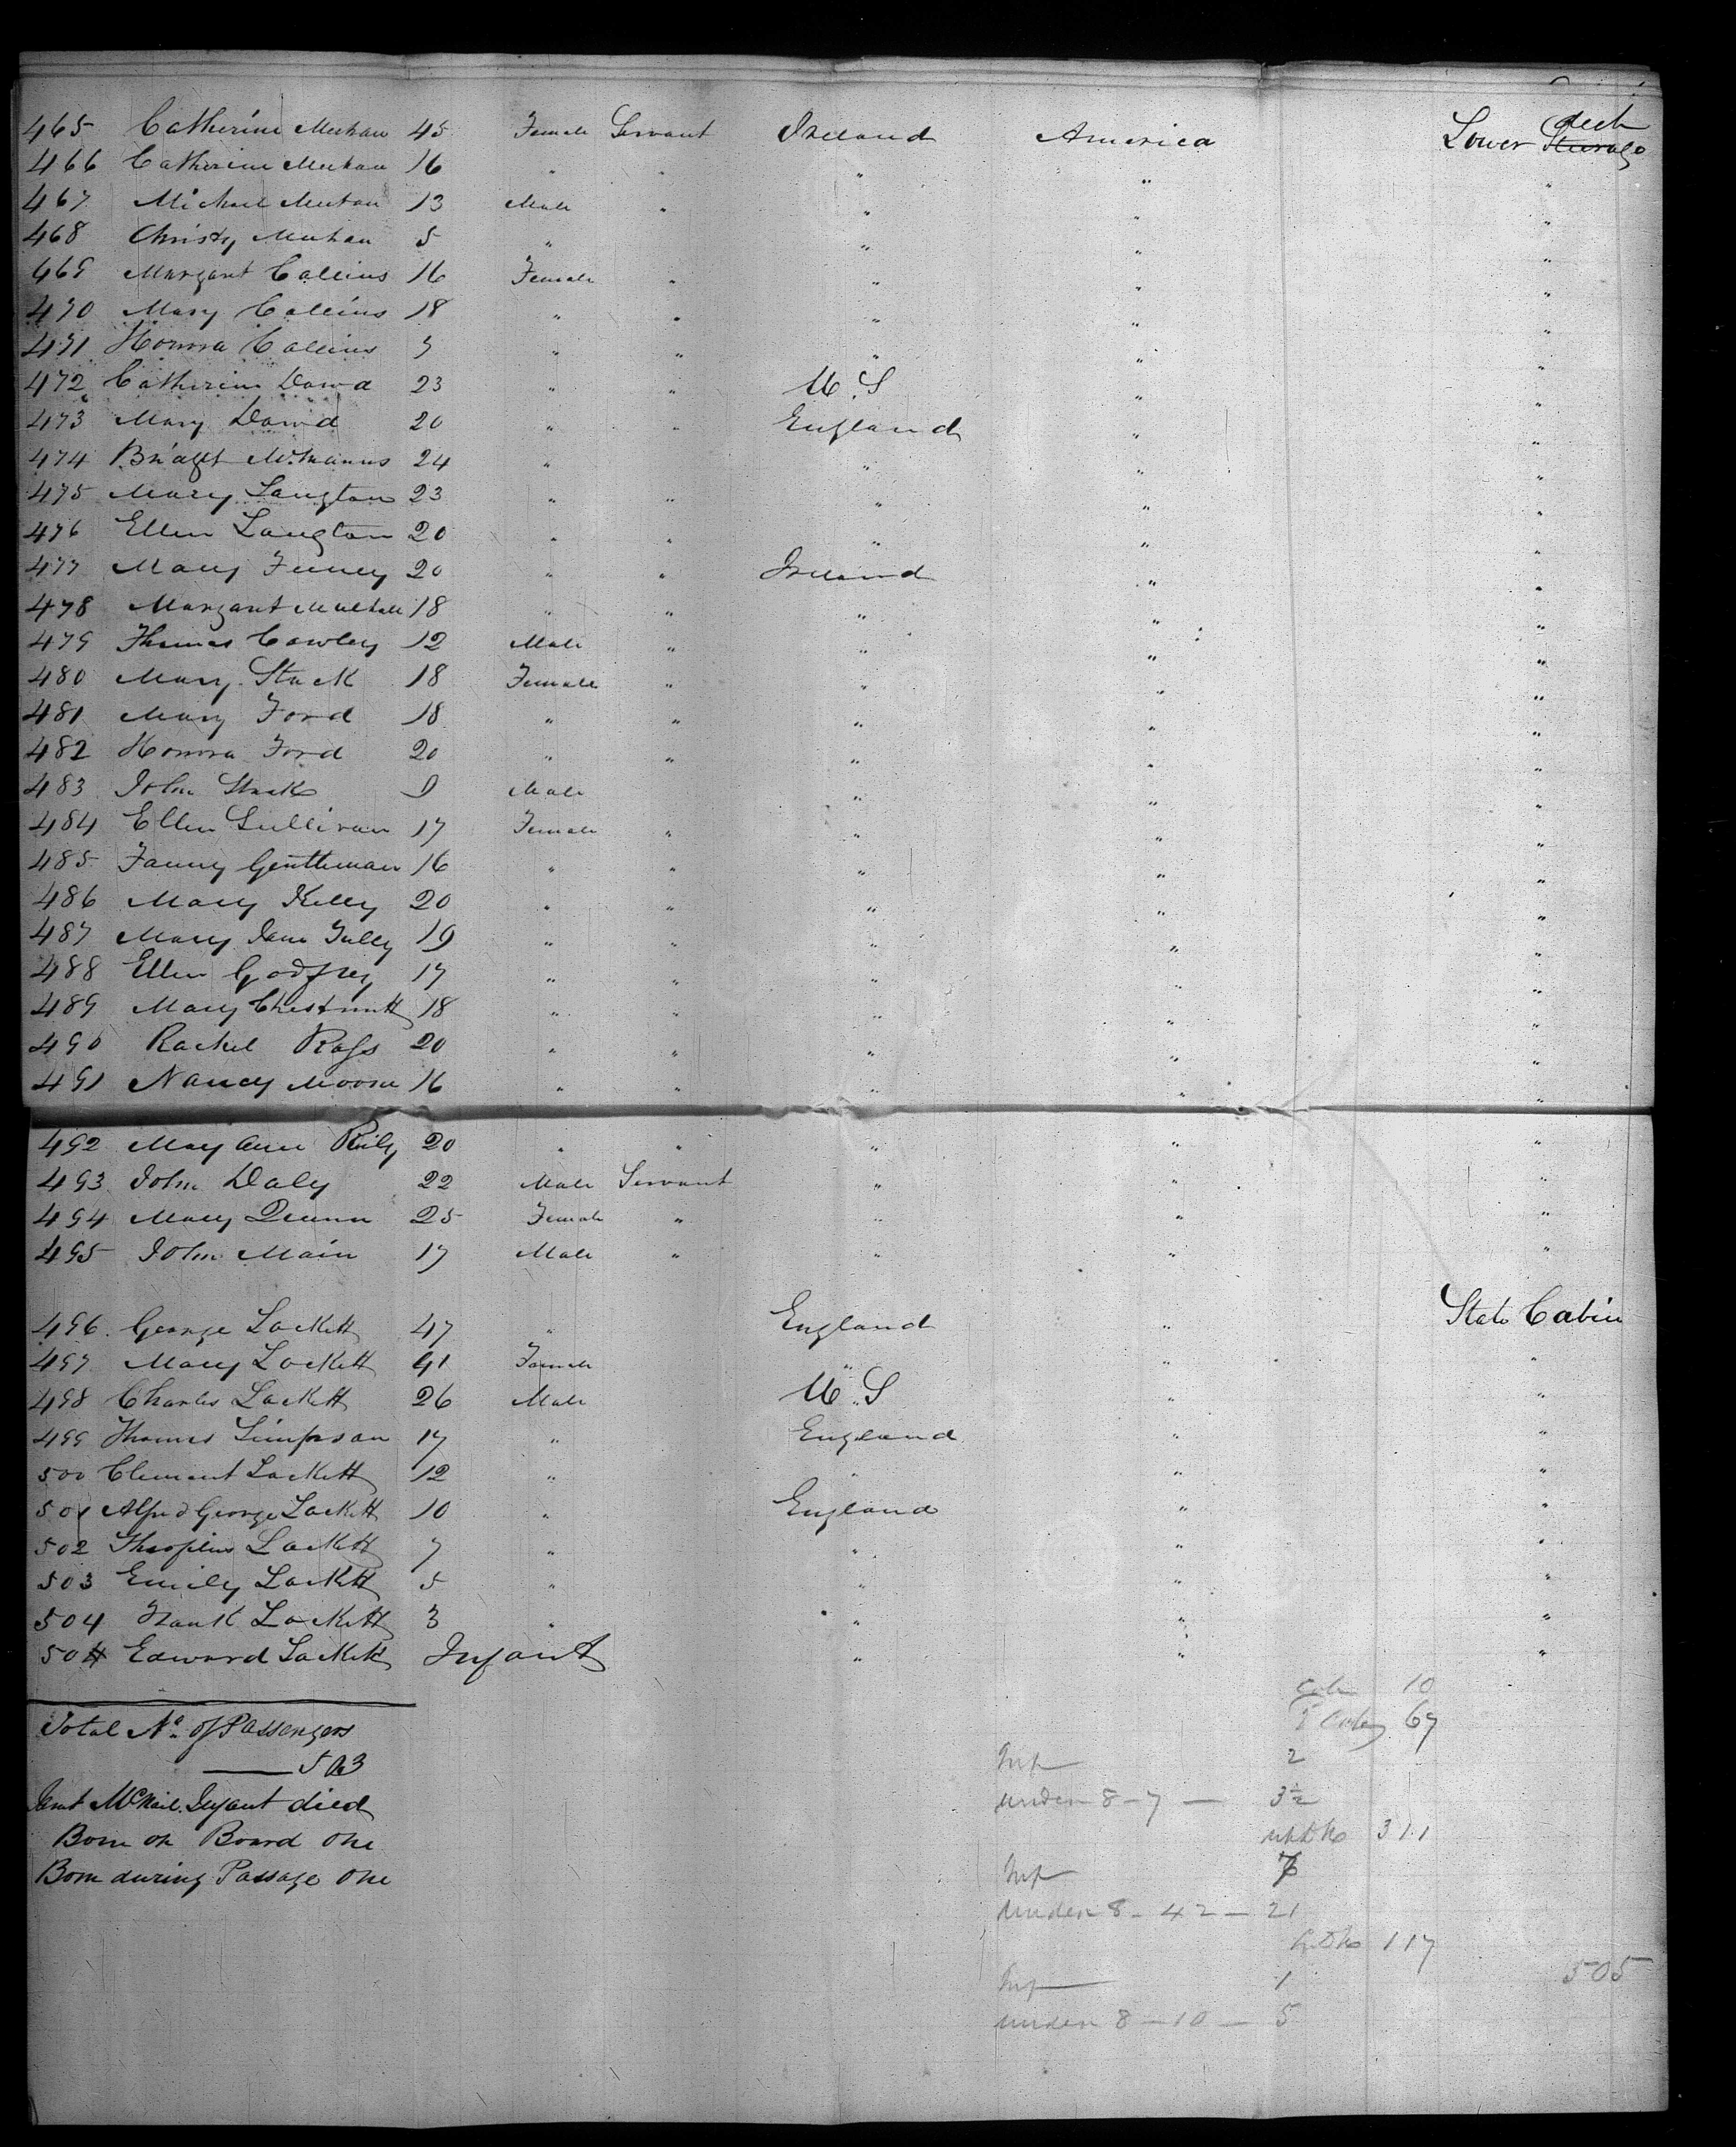 465 Catherine Meehan 45 Female Servant Ireland America Lower Steerage deck
466 Catherine Meehan 16 " " " " "
467 Michael Meehan 13 Male " " " "
468 Christy Meehan 5 " " " "
469 Margaret Collins 16 Female " " " "
470 Mary Collins 18 " " " " "
471 Honora Collins 7 " " " " "
472 Catherine Dowd 23 " " U.S " "
473 Mary Dowd 20 " " England " "
474 Bridget McManus 24 " " " "
475 Mary Langton 23 " " " " "
476 Ellen Langton 20 " " " " "
477 Mary Feeney 20 " " Ireland " "
478 Margaret Mulhall 18 " " " " "
479 Thomas Cowley 12 Male " " " "
480 Mary Stack 18 Female " " " "
481 Mary Ford 18 " " " " "
482 Honora Ford 20 " " " " "
483 John Stack 9 Male " " "
484 Ellen Sullivan 17 Female " " " "
485 Fanny Gentleman 16 " " " " "
486 Mary Kelly 20 " " " " "
487 Mary Jane Tully 19 " " " " "
488 Ellen Godfrey 17 " " " " "
489 Mary Chestnutt 18 " " " " "
490 Rachel Ross 20 " " " " "
491 Nancy Moore 16 " " " " "
492 Mary Ann Reily 20 " " " " "
493 John Daly 22 Male Servant " " "
494 Mary Quinn 25 Female " " " "
495 John Main 17 Male " " " "
496 George Lockett 47 " England " State Cabin
497 Mary Lockett 41 Female " " "
498 Charles Lockett 26 Male U.S " "
499 Thomas Simpson 17 " England " "
500 Clement Lockett 12 " " " "
501 Alfred George Lockett 10 " England " "
502 Theopilus Lockett 7 " " " "
503 Emily Lockett 5 " " " "
504 Frank Lockett 3 " " " "
504 Edward Lockett Infant " " "
10
67
Total No. of Passengers
503
Inf 2
McNail. Infant died
under 8 - 7 - 3½
Born on Board One
311
Born during Passage One
Inf 7
under 8 - 42 - 21
117
505
Inf 1
under 8 - 10 - 5